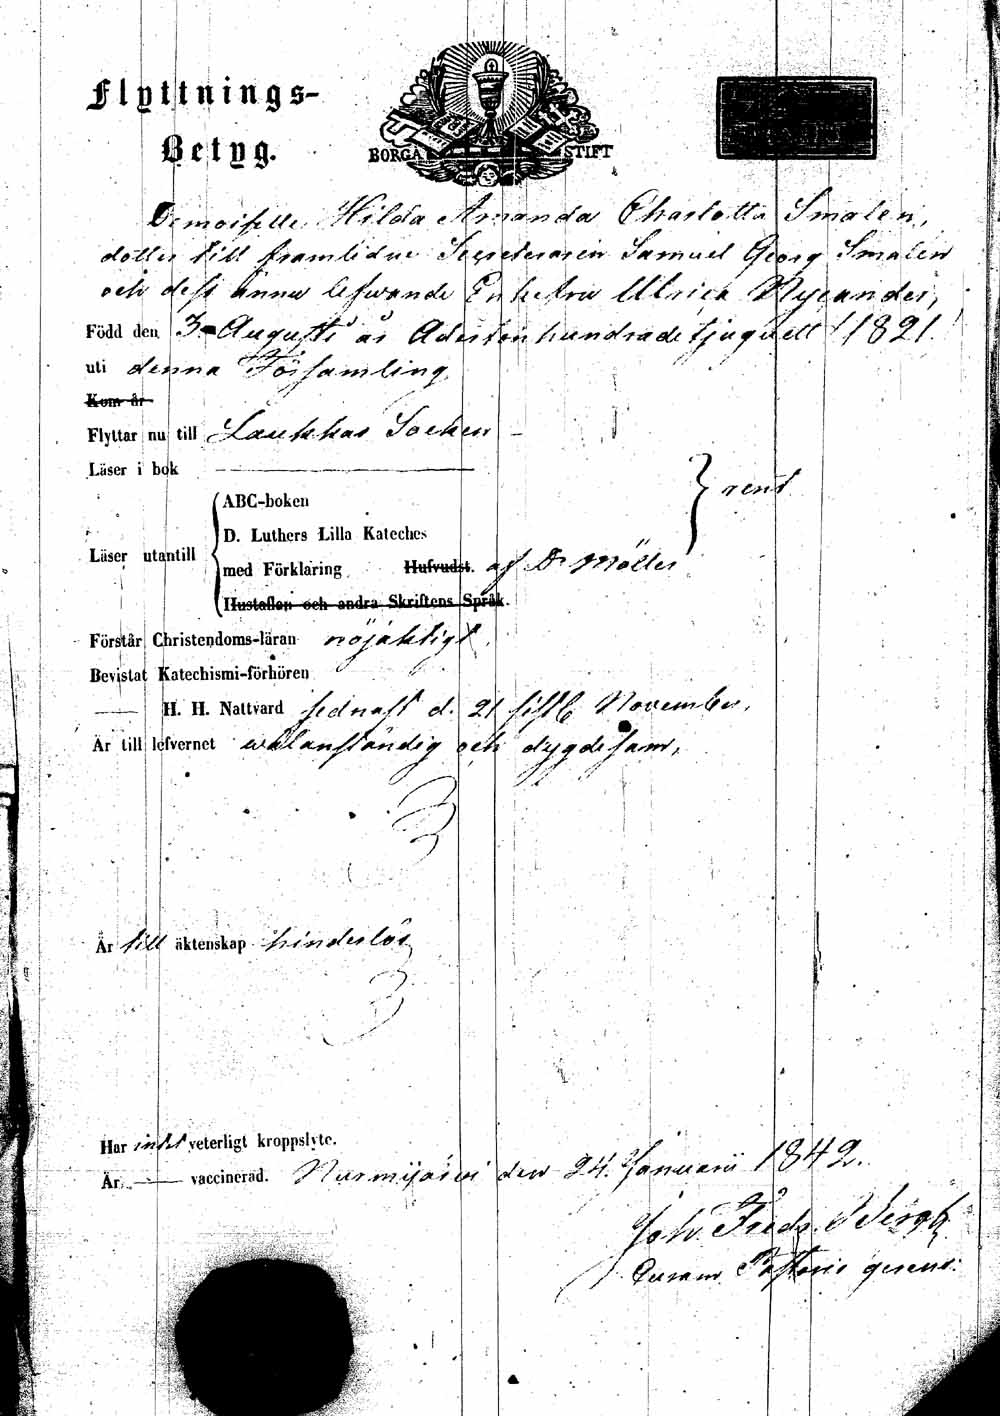 Flyttnings-
Betyg.
BORGÅ STIFT
Demoiselle Hilda Amanda Charlotta Smalen,
dotter till framlidne Secreteraren Samuel Georg Smalen
och dess ännu lefwande Enkefru Ulrica Nycander,
Född den 3 Augusti år Adertonhundradetjuguett 1821.
uti denna Församling
Kom år
Flyttar nu till Laukkas Socken
Läser i bok
rent
ABC-boken
D. Luthers Lilla Kateches
Läser utantill
med Förklaring Hufvudst. af Dr Möller
Hustaflan och andra Skriftens Språk.
Förstår Christendoms-läran nöjaktigt.
Bevistat Katechismi-förhören
H. H. Nattvard sednast d. 21 sistl. November.
Är till lefvernet wälanständig och dygdesam,
Är till äktenskap hinderlös
Har intet veterligt kroppslyte.
Är vaccinerad. Nurmijärvi den 24. Januarii 1842.
Joh. Fredr. Bergh
Curam Pastoris gerens.